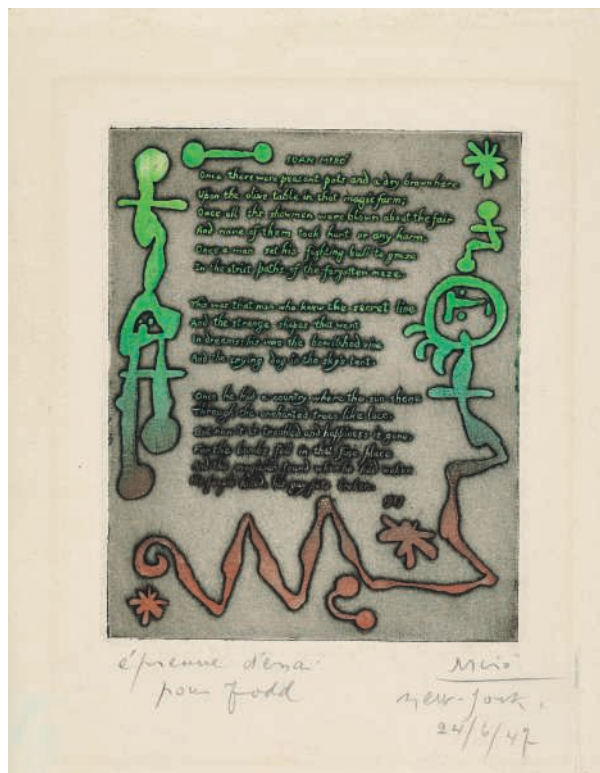 JOAN MIRÓ
Once there were peasant pots and a dry brown hare
Upon the olive table in that magic farm;
Once all the showmen were blown about the fair
And none of them took hurt or any harm.
Once a man set his fighting bull to graze
In the strict paths of the forgotten maze.
This was that man who knew the secret line
And the strange shapes that went
In dreams; his was the bewitched vine
And the crying dog in the sky's tent.
Once he had a country where the sun shone
Through the enchanted trees like lace,
But now it is troubled and happiness is gone
For the bombs fell in that fine place
And the magician found when he had woken
His people killed, his gay pots broken.
épreuve d'essai
pour Todd
Miró
New-York.
24/6/47